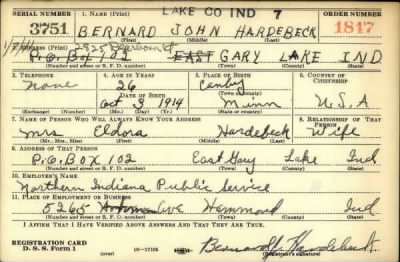 LAKE CO IND 7
SERIAL NUMBER 1. NAME (Print) ORDER NUMBER
3751 BERNARD JOHN HARDEBECK 1847
(First) (Middle) (Last)
2. ADDRESS (Print)
P.O. Box 102 EAST GARY LAKE IND.
(Number and street or R. F. D. number) (Town) (County) (State)
3. TELEPHONE 4. AGE IN YEARS 5. PLACE OF BIRTH 6. COUNTRY OF CITIZENSHIP
None 26 Canby
DATE OF BIRTH
Oct 3 1914 Minn U.S.A
(Exchange) (Number) (Mo.) (Day) (Yr.) (State or country)
7. NAME OF PERSON WHO WILL ALWAYS KNOW YOUR ADDRESS 8. RELATIONSHIP OF THAT PERSON
Mrs Eldora Hardebeck Wife
(Mr., Mrs., Miss) (First) (Middle) (Last)
9. ADDRESS OF THAT PERSON
P.O. Box 102 East Gary Lake Ind
(Number and street or R. F. D. number) (Town) (County) (State)
10. EMPLOYER'S NAME
Northern Indiana Public Service
11. PLACE OF EMPLOYMENT OR BUSINESS
5265 Ave Hammond Ind
(Number and street or R. F. D. number) (Town) (County) (State)
I AFFIRM THAT I HAVE VERIFIED ABOVE ANSWERS AND THAT THEY ARE TRUE.
REGISTRATION CARD
D. S. S. Form 1 16—17105 Bernard J. Hardebeck
(Registrant's signature)